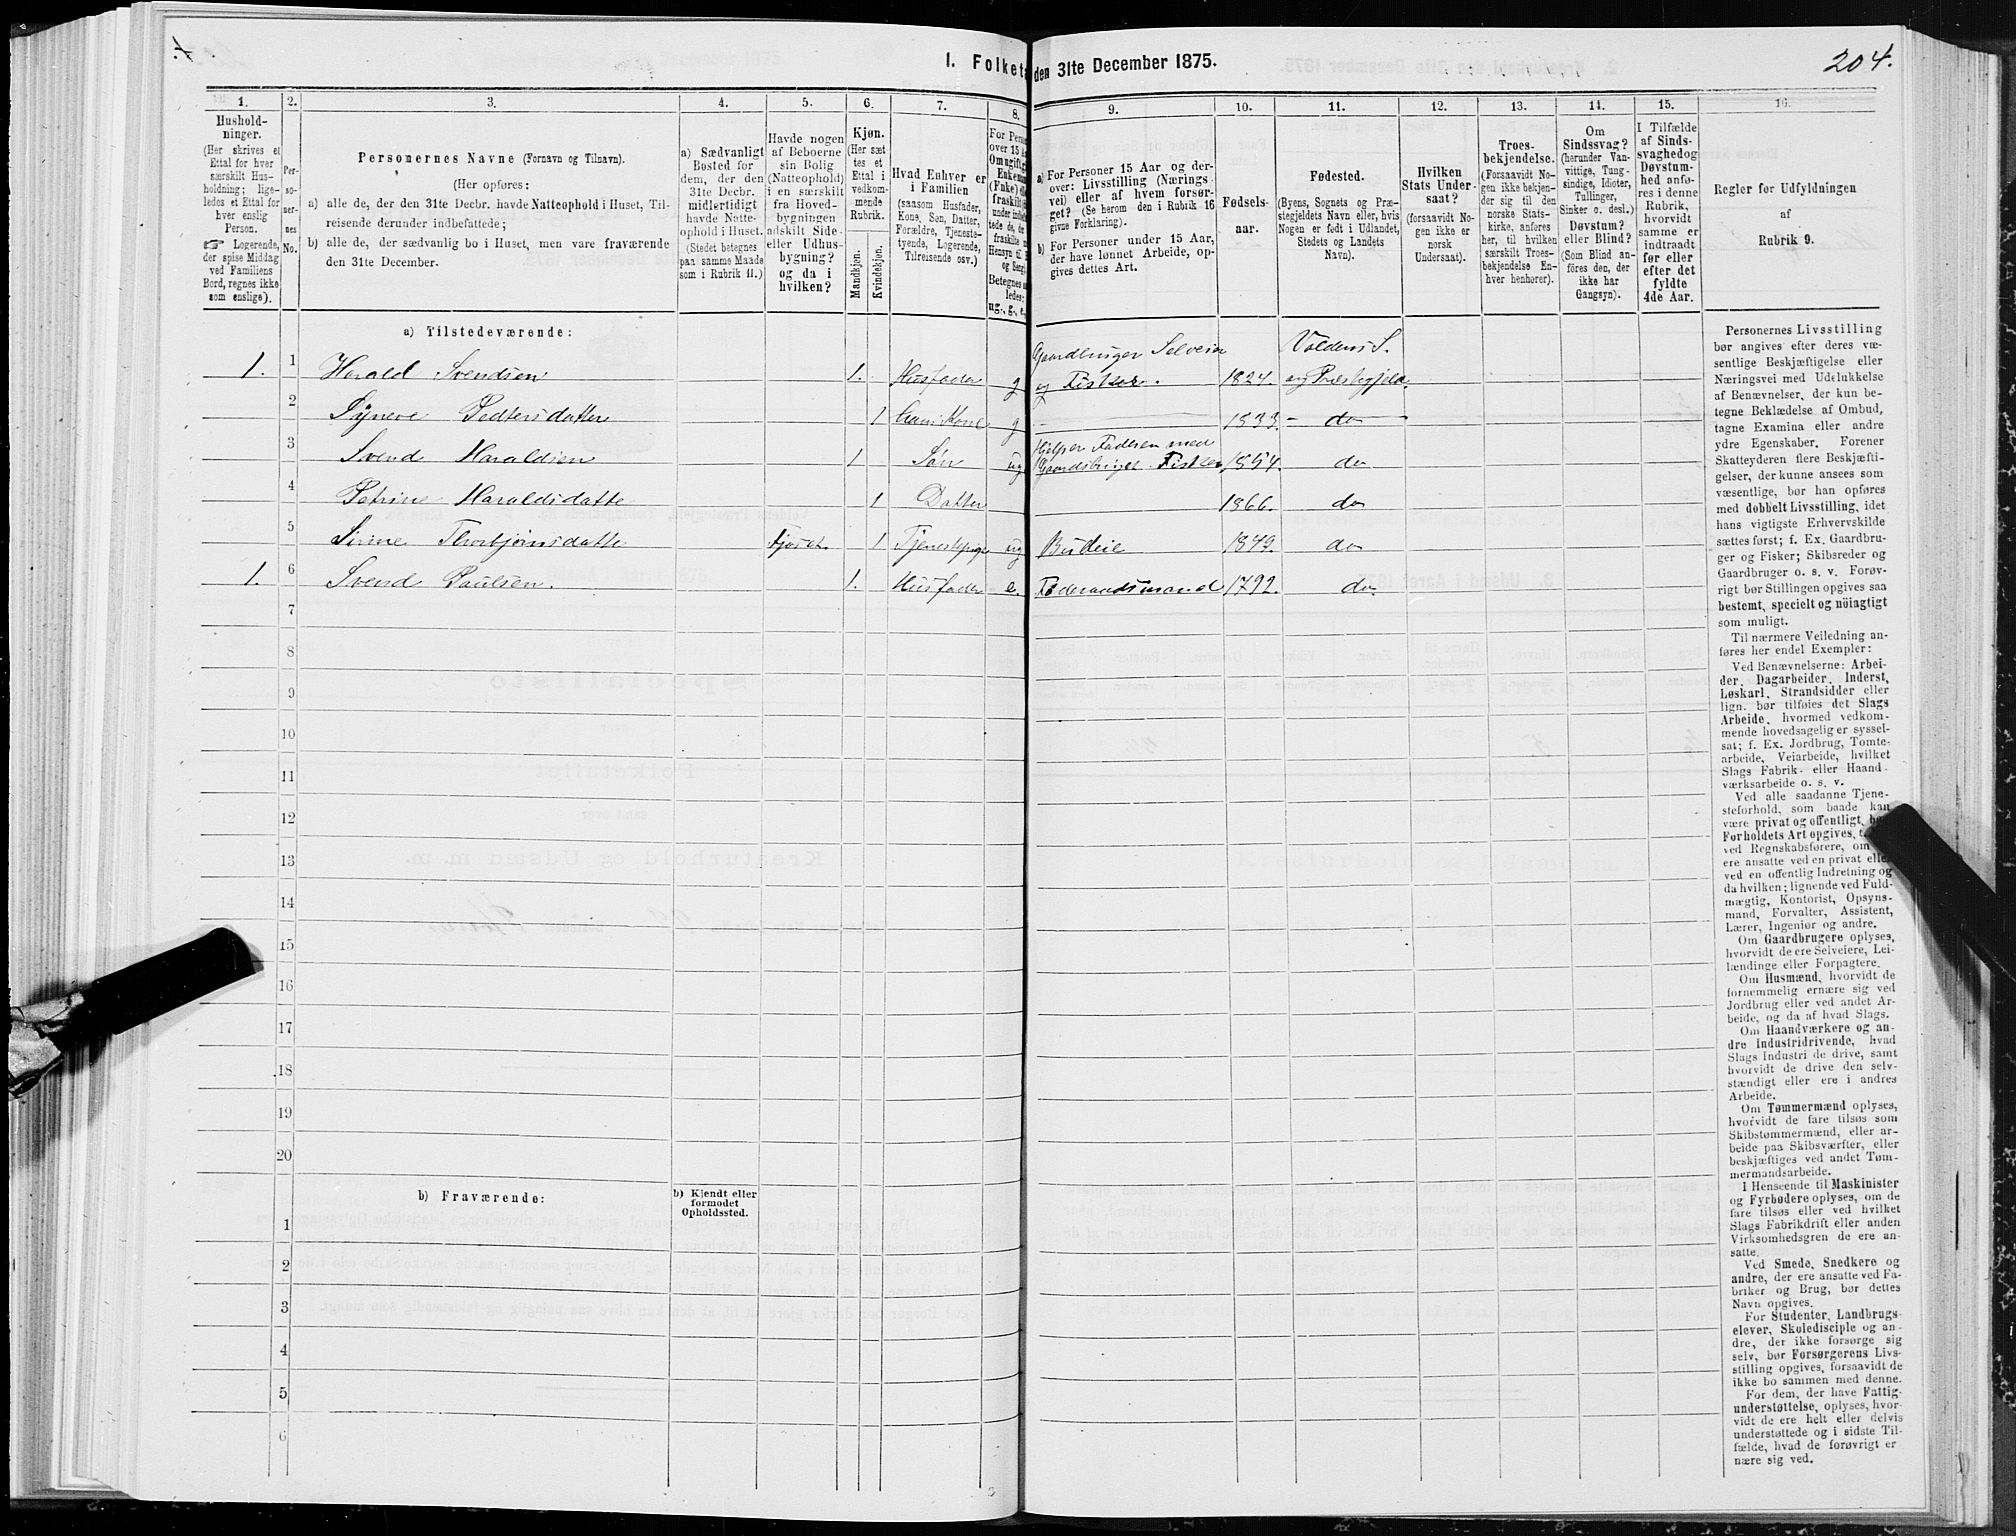 204.
I. Folketæ
den 31te December 1875.
1. 2. 3. 4. 5. 6. 7. 8. 9. 10. 11. 12. 13. 14. 15. 16.
Hushold-
ninger.
(Her skrives et
Ettal for hver
særskilt Hus-
holdning; lige-
ledes et Ettal for
hver enslig
Person.
☞ Logerende,
der spise Middag
ved Familiens
Bord, regnes ikke
som enslige).
Per-
so-
ner-
nes
No.
Personernes Navne (Fornavn og Tilnavn).
(Her opføres:
a) alle de, der den 31te Decbr. havde Natteophold i Huset, Til-
reisende derunder indbefattede;
b) alle de, der sædvanlig bo i Huset, men vare fraværende
den 31te December.
a) Sædvanligt
Bosted for
dem, der den
31te Decbr.
midlertidigt
havde Natte-
ophold i Huset.
(Stedet betegnes
paa samme Maade
som i Rubrik 11.)
Havde nogen
af Beboerne
sin Bolig
(Natteophold)
i en særskilt
fra Hoved-
bygningen
adskilt Side-
eller Udhus-
bygning?
og da i
hvilken?
Kjøn.
(Her sæt-
tes et
Ettal i
vedkom-
mende
Rubrik.
Mandkjøn.
Kvindekjøn.
Hvad Enhver er
i Familien
(saasom Husfader,
Kone, Søn, Datter,
Forældre, Tjeneste-
tyende, Logerende,
Tilreisende osv.)
a) For Personer 15 Aar og der-
over: Livsstilling (Nærings-
vei) eller af hvem forsør-
get? (Se herom den i Rubrik 16
givne Forklaring).
b) For Personer under 15 Aar,
der have lønnet Arbeide, op-
gives dettes Art.
Fødsels-
aar.
Fødested.
(Byens, Sognets og Præ-
stegjeldets Navn eller, hvis
Nogen er født i Udlandet,
Stedets og Landets
Navn).
Hvilken
Stats Under-
saat?
(forsaavidt No-
gen ikke er
norsk
Undersaat).
Troes-
bekjendelse.
(Forsaavidt No-
gen ikke bekjen-
der sig til den
norske Stats-
kirke, anføres
her, til hvilken
særskilt Troes-
bekjendelse En-
hver henhører).
Om
Sindssvag?
(herunder Van-
vittige, Tung-
sindige, Idioter,
Tullinger,
Sinker o. desl.)
Døvstum?
eller Blind?
(Som Blind an-
føres den, der
ikke har
Gangsyn).
I Tilfælde
af Sinds-
svaghed og
Døvstum-
hed anfø-
res i denne
Rubrik,
hvorvidt
samme er
indtraadt
før eller
efter det
fyldte
4de Aar.
Regler før Udfyldningen
af
Rubrik 9.
a) Tilstedeværende:
1. 1 Harald Svendsen 1. Husfader g Gaardbruger Selveier og Fisker. 1824. Voldens S. og Præstegjeld.
2 Syneve Pedtersdatter 1 hans Kone g 1833. do
3 Svend Haraldsen 1 Søn ug Hjelper Faderen med Gaardsbruget Fisker 1854. do
4 Petrine Haraldsdatte 1 Datter 1866. do
5 Sirine Thorbjørnsdatte Fjøset. 1 Tjenestepige ug Budeie 1849. do
1. 6 Svend Paulsen. 1. Husfader e. Føderaadsmand 1792. do
7
8
9
10
11
12
13
14
15
16
17
18
19
20
b) Fraværende:
b) Kjendt eller
formodet
Opholdssted.
1
2
3
4
5
6
Personernes Livsstilling
bør angives efter deres væ-
sentlige Beskjæftigelse eller
Næringsvei med Udelukkelse
af Benævnelser, der kun be-
tegne Beklædelse af Ombud,
tagne Examina eller andre
ydre Egenskaber. Forener
Skatteyderen flere Beskjæfti-
gelser, der kunne ansees som
væsentlige, bør han opføres
med dobbelt Livsstilling, idet
hans vigtigste Erhvervskilde
sættes først; f. Ex. Gaardbru-
ger og Fisker; Skibsreder og
Gaardbruger o. s. v. Forøv-
rigt bør Stillingen opgives saa
bestemt, specielt og nöiagtigt
som muligt.
Til nærmere Veiledning an-
føres her endel Exempler:
Ved Benævnelserne: Arbei-
der, Dagarbeider, Inderst,
Løskarl, Strandsidder eller
lign. bør tilføies det Slags
Arbeide, hvormed vedkom-
mende hovedsagelig er syssel-
sat; f. Ex. Jordbrug, Tomte-
arbeide, Veiarbeide, hvilket
Slags Fabrik- eller Haand-
værksarbeide o. s. v.
Ved alle saadanne Tjene-
steforhold, som baade kan
være privat og offentligt, bør
Forholdets Art opgives,
ved Regnskabsførere, om
ere ansatte ved en privat eller
ved en offentlig Indretning og
da hvilken; lignende ved Fuld-
mægtig, Kontorist, Opsyns-
mand, Forvalter, Assistent,
Lærer, Ingeniør og andre.
Om Gaardbrugere oplyses,
hvorvidt de ere Selveiere, Lei-
lændinge eller Forpagtere.
Om Husmænd, hvorvidt de
fornemmelig ernære sig ved
Jordbrug eller ved andet Ar-
beide, og da af hvad Slags.
Om Haandværkere og an-
dre Industridrivende, hvad
Slags Industri de drive, samt
hvorvidt de drive den selv-
stændigt eller ere i andres
Arbeide.
Om Tømmermænd oplyses,
hvorvidt de fare tilsøs som
Skibstømmermænd, eller ar-
beide paa Skibsværfter, eller
beskjæftiges ved andet Tøm-
mermandsarbeide.
I Henseende til Maskinister
og Fyrbødere oplyses, om de
fare tilsøs eller ved hvilket
Slags Fabrikdrift eller anden
Virksomhedsgren de ere an-
satte.
Ved Smede, Snedkere og
andre, der ere ansatte ved Fa-
briker og Brug, bør dettes
Navn opgives.
For Studenter, Landbrugs-
elever, Skoledisciple og an-
dre, der ikke forsørge sig
selv, bør Forsørgerens Livs-
stilling opgives, forsaavidt de
ikke bo sammen med denne.
For dem, der have Fattig-
understøttelse, oplyses, hvor-
vidt de ere helt eller delvis
understøttede og i sidste Til-
fælde, hvad de forøvrigt er
nære sig ved.